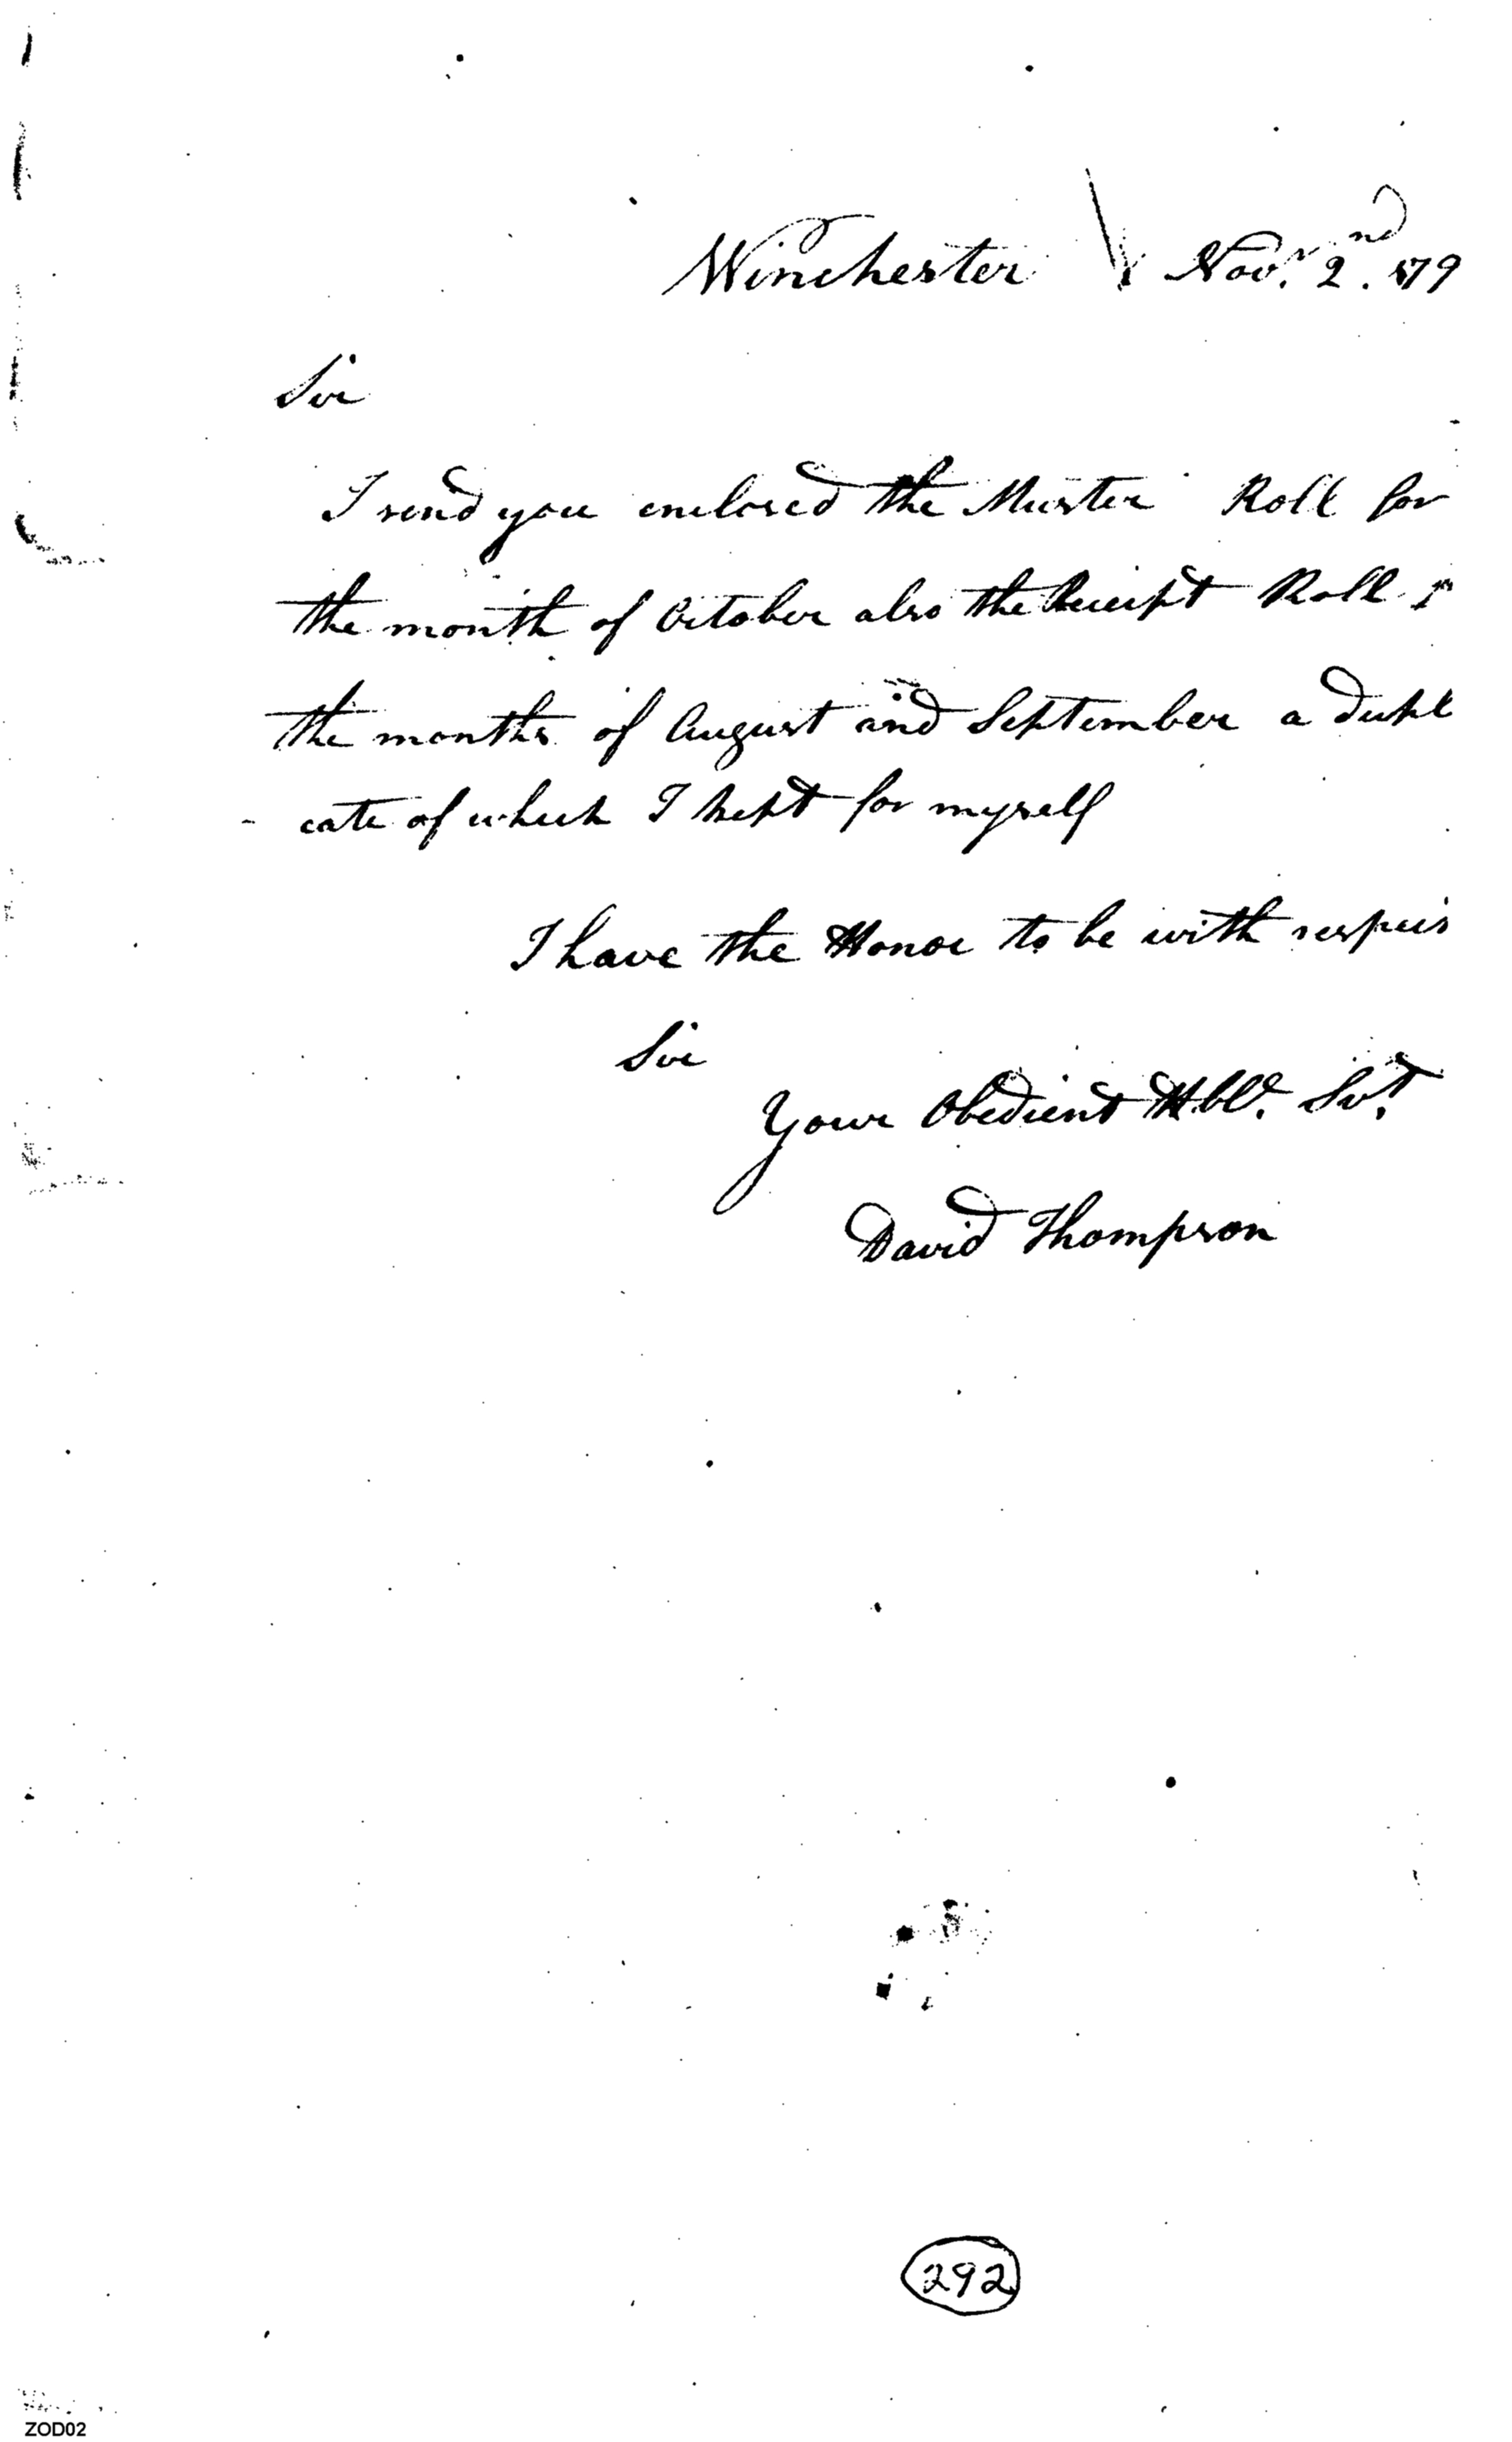 Winchester V Novr. 2nd. 
Sir
I send you enclosed the Muster Roll for
the month of October also the Receipt Roll
the months of August and September a Dupl
- cate of which I kept for myself
I have the Honor to be with respec
Sir
Your Obedient Hble. Svt.
David Thompson
292
ZOD02